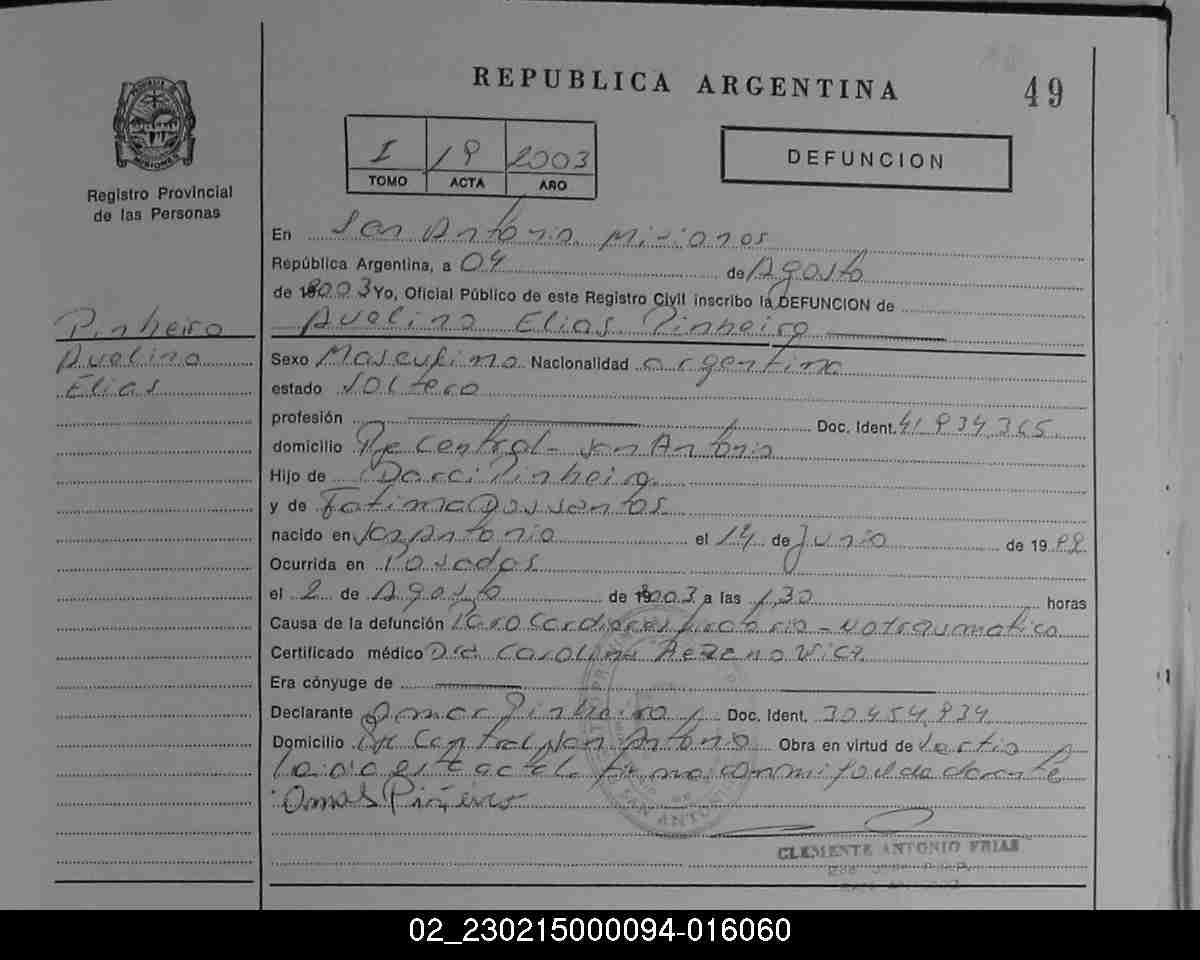 REPUBLICA ARGENTINA
49
MISIONES
Registro Provincial
de las Personas
I 19 2003
TOMO ACTA AÑO
DEFUNCION
En San Antonio Misiones
República Argentina, a 04 de Agosto
de 2003 Yo, Oficial Público de este Registro Civil inscribo la DEFUNCION de
Avelino Elias Pinheiro
Pinheiro
Avelino
Elias
Sexo Masculino Nacionalidad argentina
estado Soltero
profesión Doc. Ident. 41.934.365
domicilio Pje Central - San Antonio
Hijo de Darci Pinheiro
y de Fatima Dos santos
nacido en San Antonio el 14 de Junio de 19
Ocurrida en Posadas
el 2 de Agosto de 2003 a las 1,30 horas
Causa de la defunción Paro Cardiorespiratorio - No traumatico
Certificado médico Dra Carolina
Era cónyuge de
Declarante Omar Pinheiro Doc. Ident. 30.454.934
Domicilio Pje Central San Antonio Obra en virtud de
Leida el acta firma conmigo el declarante
Omar Piñeiro
SAN ANTONIO
CLEMENTE ANTONIO FRIAS
02_230215000094-016060